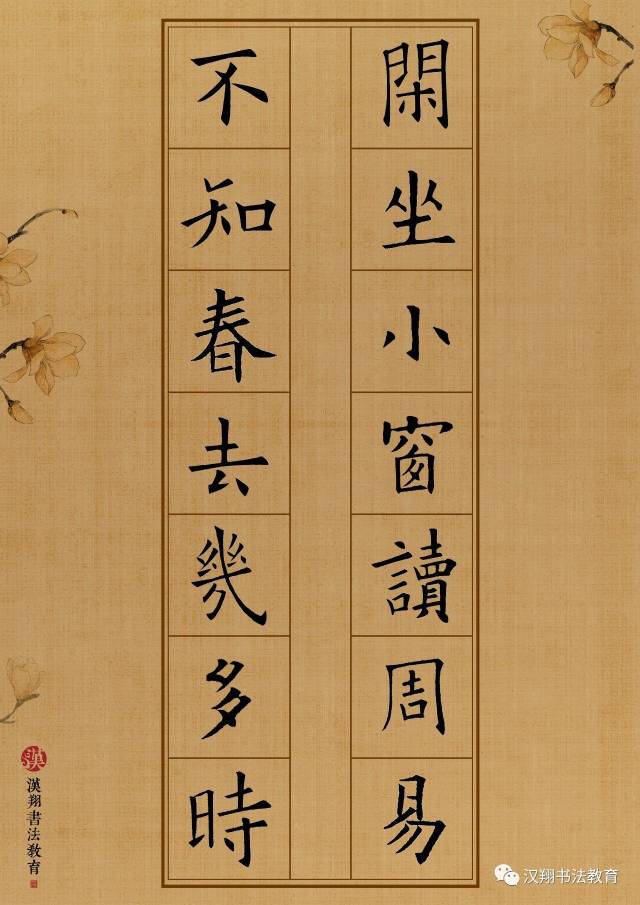 閑坐小窗讀周易
不知春去幾多時
漢翔書法教育
汉翔书法教育